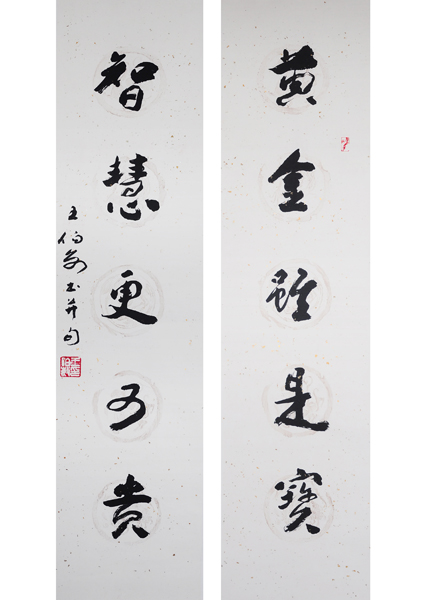 黄金雖是寶
智慧更可貴
王伯书并句